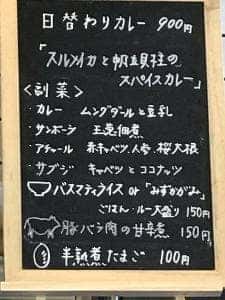 日替わりカレー 900円
「スルメイカと帆立貝柱の
スパイスカレー」
<副菜>
・カレー ムングダールと豆乳
・サンボーラ 玉葱佃煮
・アチャール 赤キャベツ、人参、桜大根
・サブジ キャベツとココナッツ
バスマティライス or 「みずかがみ」
ごはん・ルー大盛り 150円
豚バラ肉の甘辛煮 150円
半熟煮たまご 100円